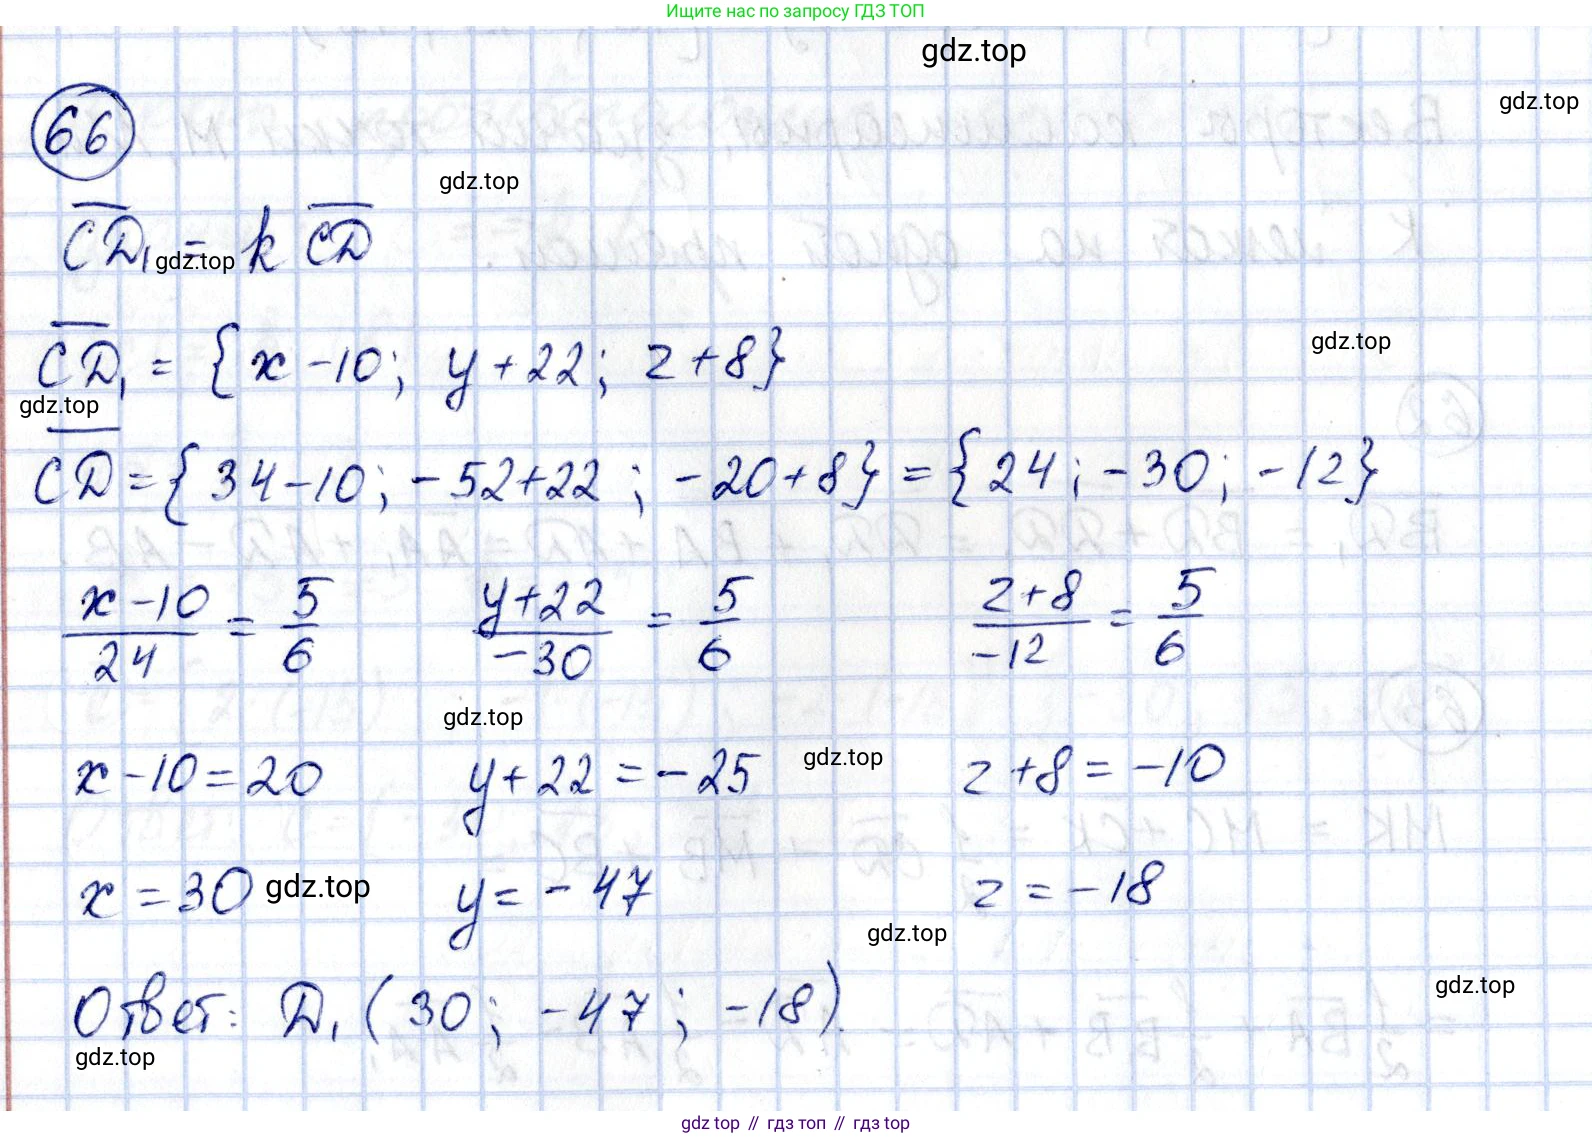 Ищите нас по запросу ГДЗ ТОП
gdz.top
gdz.top
66
gdz.top
C̅D̅₁ = k C̅D̅
gdz.top
C̅D̅₁ = {x - 10; y + 22; z + 8}
gdz.top
gdz.top
C̅D̅ = {34 - 10; -52 + 22; -20 + 8} = {24; -30; -12}
(x - 10)/24 = 5/6 (y + 22)/-30 = 5/6 (z + 8)/-12 = 5/6
gdz.top
gdz.top
x - 10 = 20 y + 22 = -25 z + 8 = -10
x = 30 y = -47 z = -18
gdz.top
gdz.top
gdz.top
Ответ: D₁ (30; -47; -18).
gdz.top
gdz.top // гдз топ // gdz.top